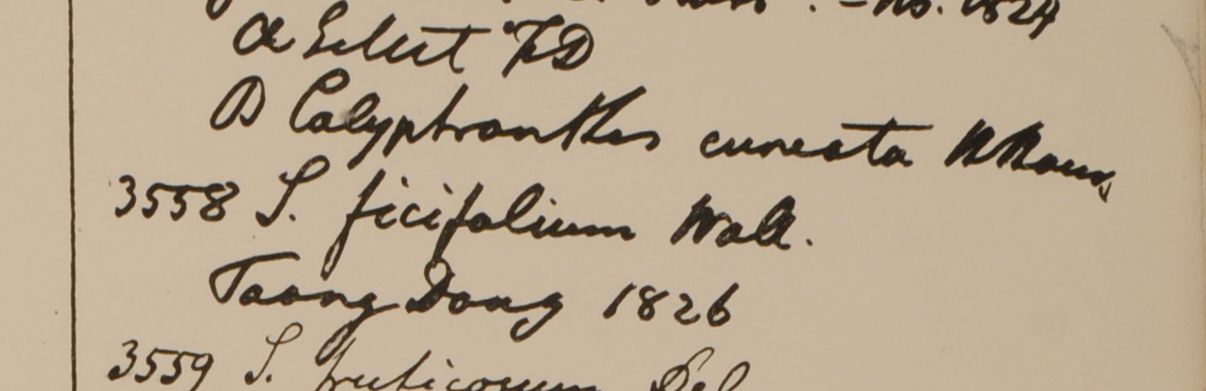 1824
a Silhet FD
B Calyptranthes cuneata
3558 S. ficifolium Wall.
Taong Dong 1826
3559 S. fruticosum